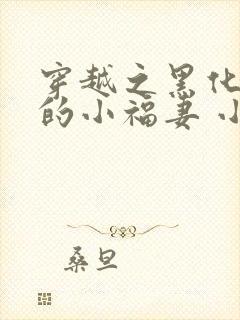 穿越之黑化
的小福妻 小
桑旦